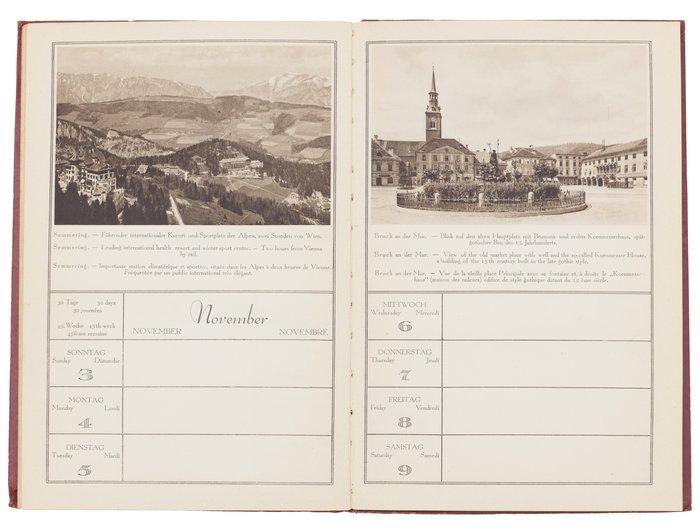 Semmering. — Führender internationaler Kurort und Sportplatz der Alpen, zwei Stunden von Wien.
Semmering. — Leading international health resort and winter sport centre. — Two hours from Vienna
by rail.
Semmering. — Importante station climatérique et sportive, située dans les Alpes à deux heures de Vienne.
Fréquentée par un public international très élégant.
30 Tage 30 days
30 journées
45. Woche 45th week
45ième semaine
November
NOVEMBER NOVEMBRE
SONNTAG
Sunday Dimanche
3
MONTAG
Monday Lundi
4
DIENSTAG
Tuesday Mardi
5
Bruck an der Mur. — Blick auf den alten Hauptplatz mit Brunnen und rechts Kornmesserhaus, spät-
gotischer Bau des 15. Jahrhunderts.
Bruck an der Mur. — View of the old market place with well and the so-called Kornmesser House,
a building of the 15th century built in the late gothic style.
Bruck an der Mur. — Vue de la vieille place Principale avec sa fontaine et, à droite le „Kornmesser-
haus" (maison des radeurs) édifice de style gothique datant du 15 ième siècle.
MITTWOCH
Wednesday Mercredi
6
DONNERSTAG
Thursday Jeudi
7
FREITAG
Friday Vendredi
8
SAMSTAG
Saturday Samedi
9